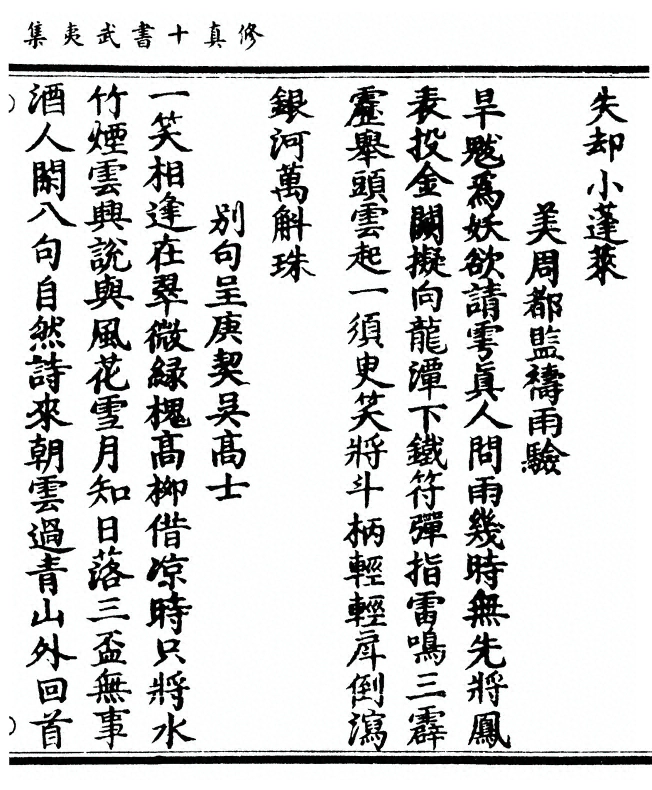 修真十書武夷集
失却小蓬萊
美周都監禱雨驗
旱魃爲妖欲請雩眞人問雨幾時無先將鳳
表投金闕擬向龍潭下鐵符彈指雷鳴三霹
靂舉頭雲起一須臾笑將斗柄輕輕戽倒瀉
銀河萬斛珠
別句呈庚契吳高士
一笑相逢在翠微緑槐高柳借凉時只將水
竹煙雲興説與風花雪月知日落三盃無事
酒人閑八句自然詩來朝雲過青山外回首